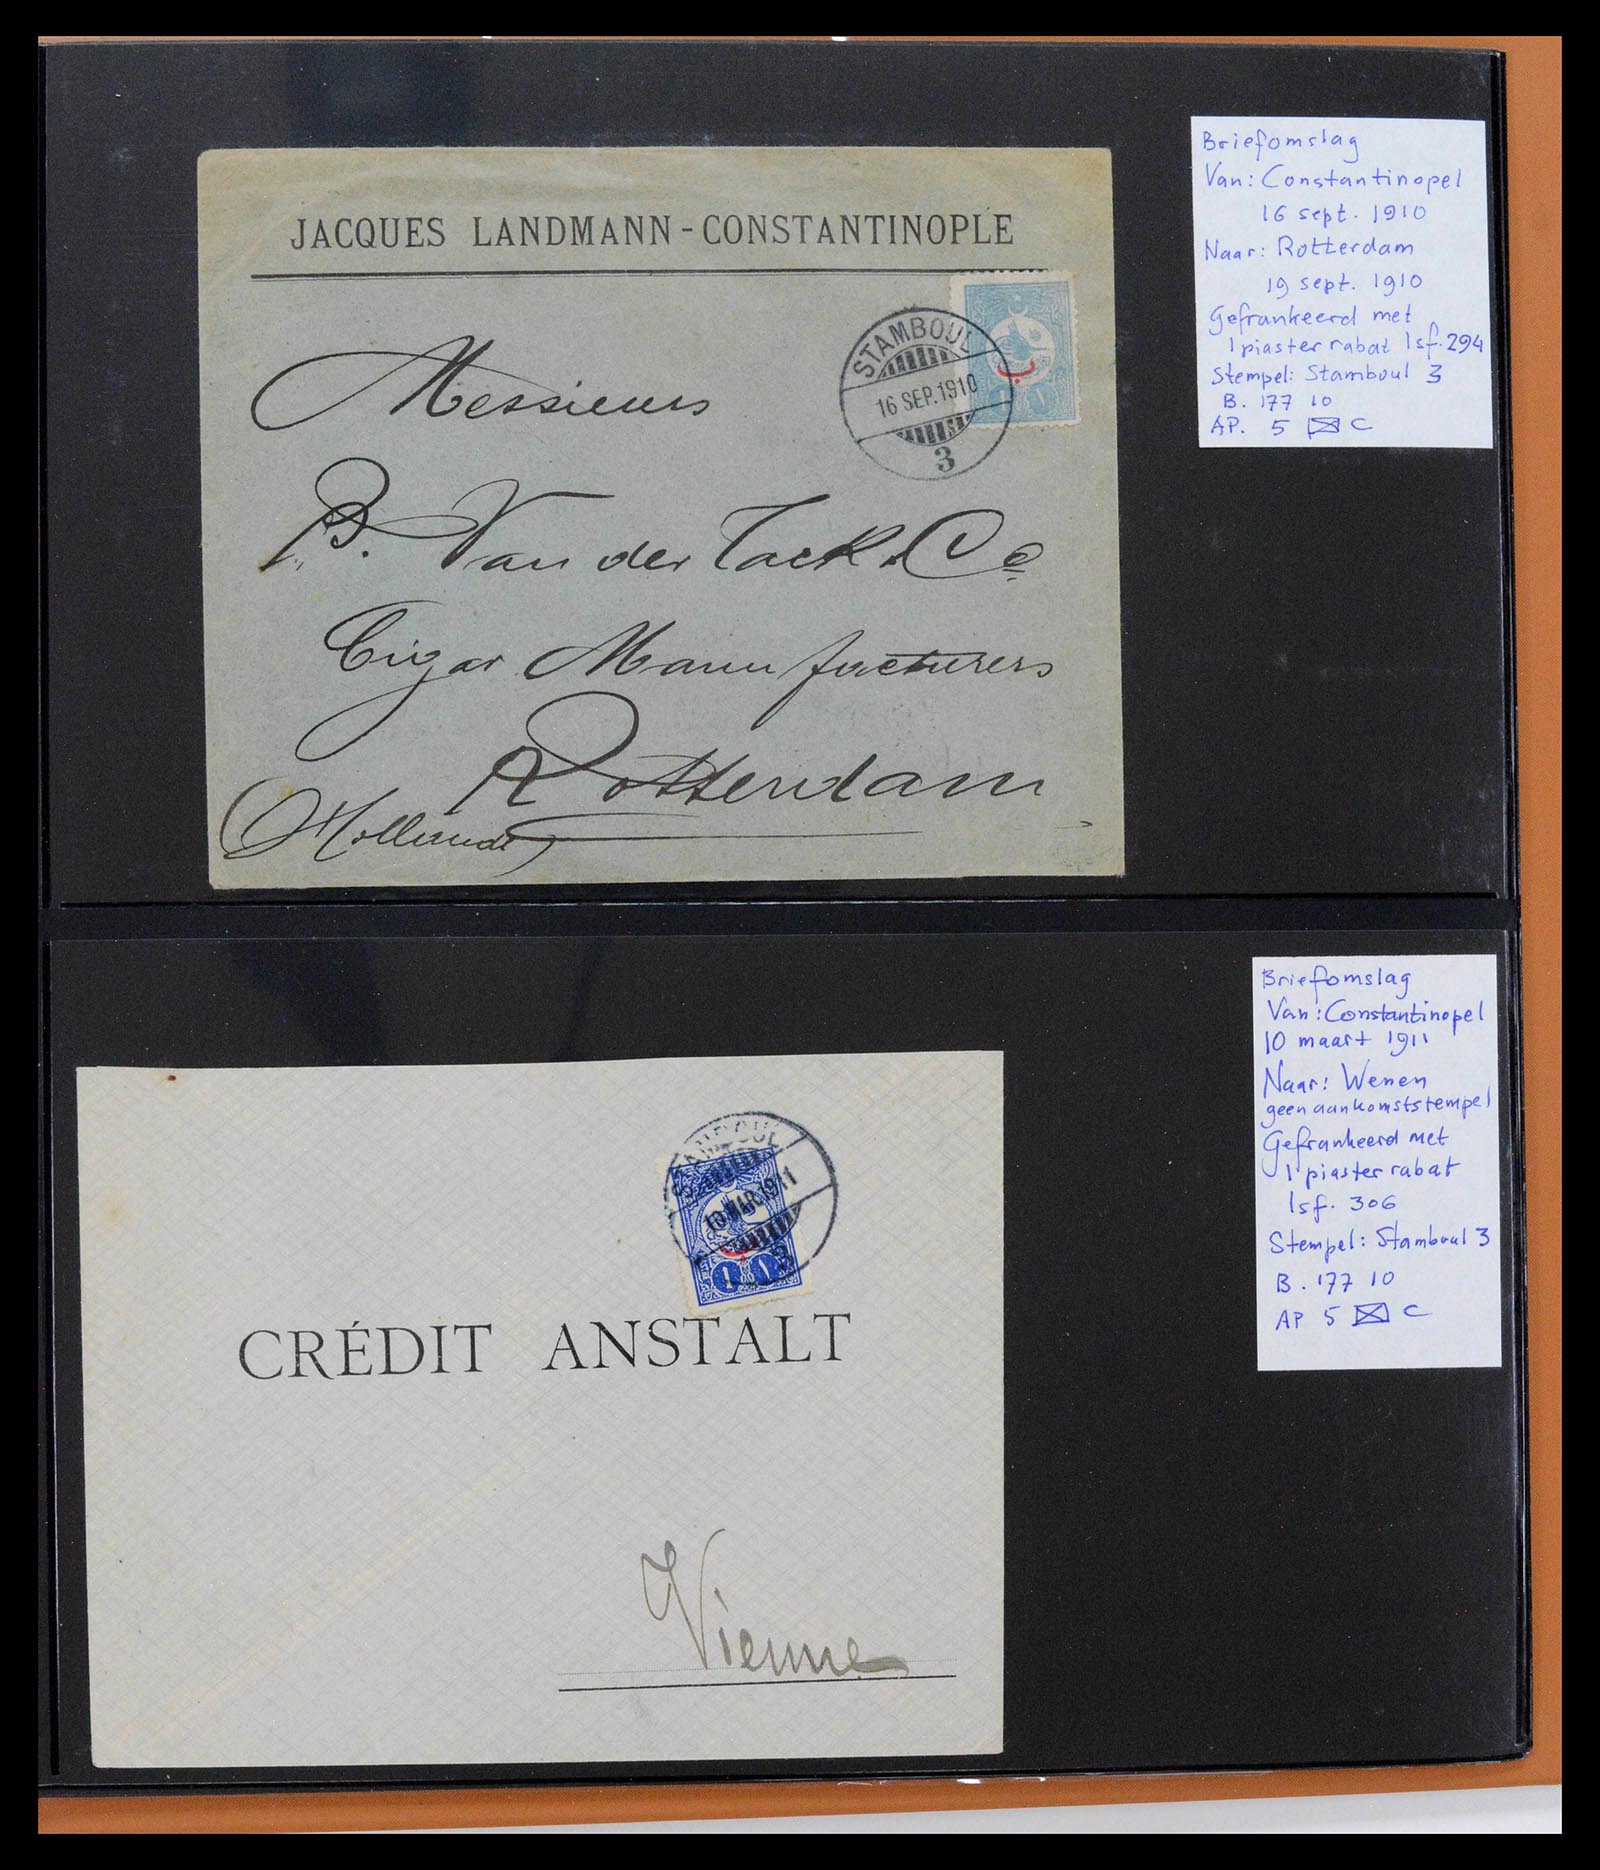 JACQUES LANDMANN-CONSTANTINOPLE
STAMBOUL
16 SEP.1910
3
Messieurs
B. Van der Tack & Co
Cigar Manufacturers
Rotterdam
(Hollande)
Briefomslag
Van: Constantinopel
16 sept. 1910
Naar: Rotterdam
19 sept. 1910
Gefrankeerd met
1 piaster rabat Isf. 294
Stempel: Stamboul 3
B. 177 10
AP. 5 C
STAMBOUL
10 MAR.1911
3
CRÉDIT ANSTALT
Vienne
Briefomslag
Van: Constantinopel
10 maart 1911
Naar: Wenen
geen aankomststempel
Gefrankeerd met
1 piaster rabat
Isf. 306
Stempel: Stamboul 3
B. 177 10
AP 5 C